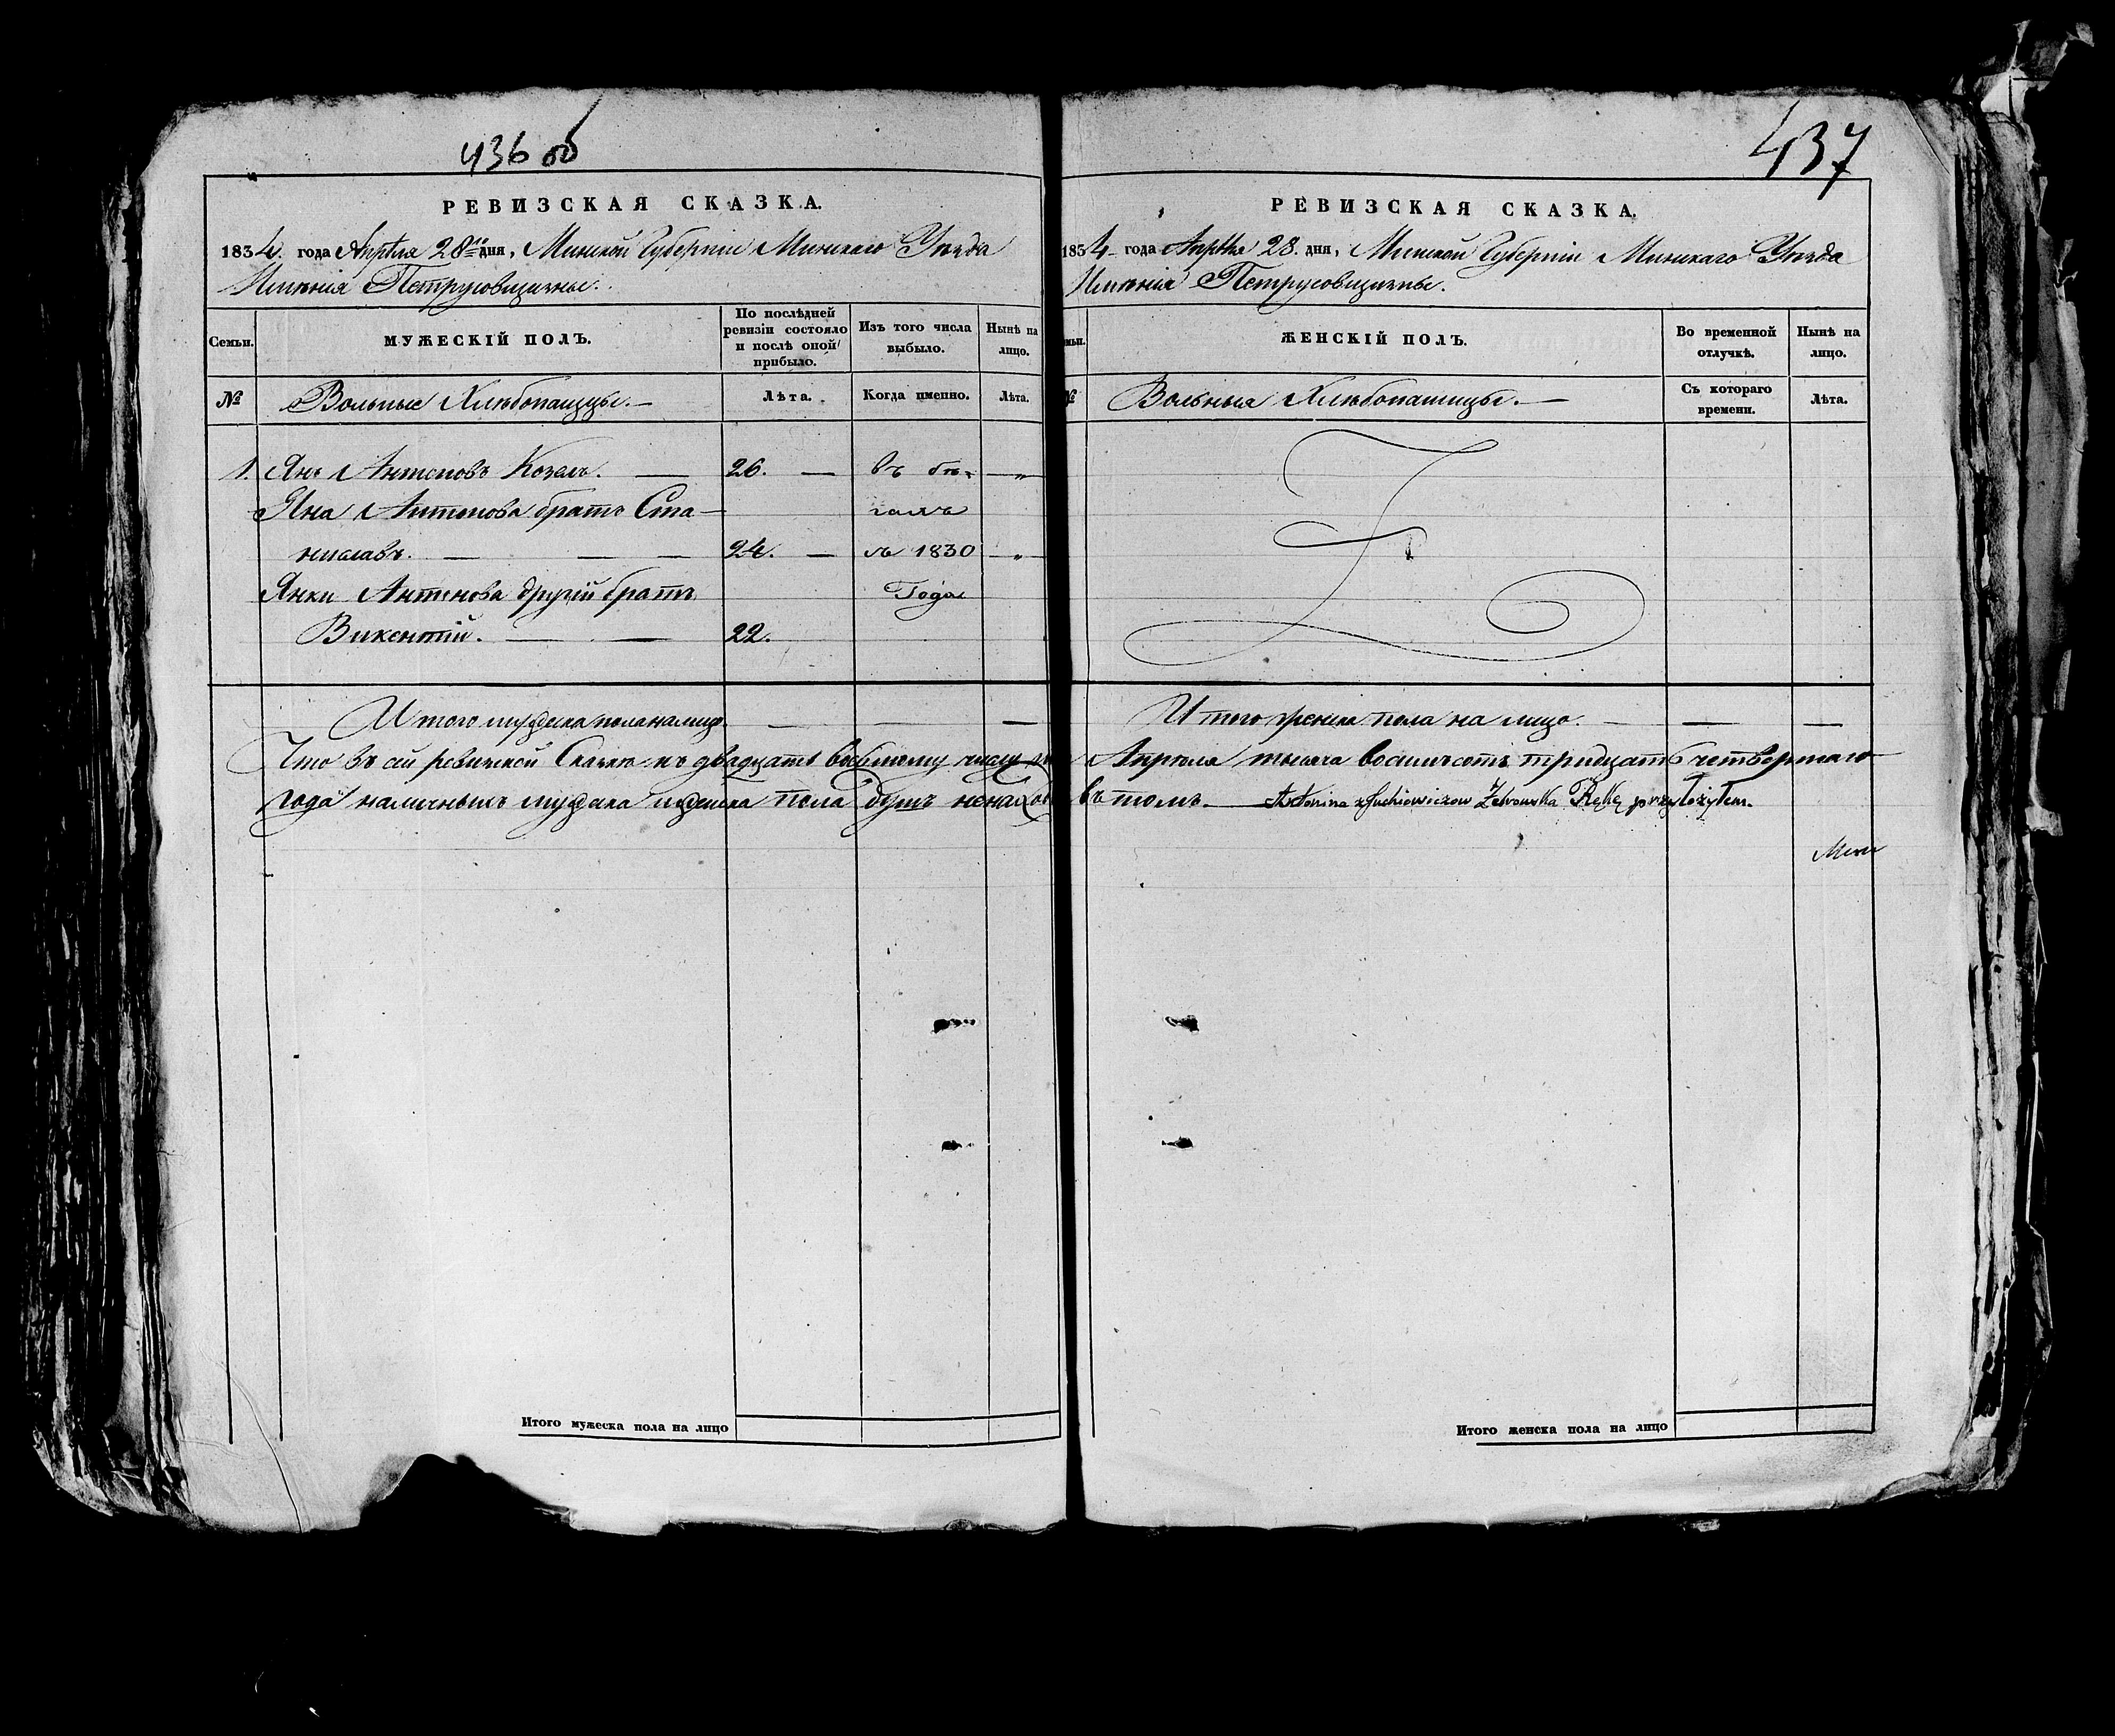 436 об
РЕВИЗСКАЯ СКАЗКА.
1834. года Апрѣля 28го дня, Минской Губерніи Минскаго Уѣзда
Имѣнія Петрусовщизны.
Семьи.
МУЖЕСКІЙ ПОЛЪ.
По послѣдней ревизіи состояло и послѣ оной прибыло.
Изъ того числа выбыло.
Нынѣ на лицо.
№
Вольные Хлѣбопашцы.
Лѣта.
Когда именно.
Лѣта.
1. Янъ Антоновъ Козелъ. — 26. — въ бѣ- „
Яна Антонова братъ Ста- гахъ
ниславъ. — — — 24. — съ 1830 „
Янки Антонова другій братъ Года
Викентій. — — 22.
Итого мужеска пола на лицо. — — —
Что въ сей ревизской Сказкѣ къ двадцать восьмому числу
года наличныхъ мужеска и женска пола душъ
Итого мужеска пола на лицо
437
РЕВИЗСКАЯ СКАЗКА.
1834 года Апрѣля 28. дня, Минской Губерніи Минскаго Уѣзда
Имѣнія Петрусовщизны.
ЖЕНСКІЙ ПОЛЪ.
Во временной отлучкѣ.
Нынѣ на лицо.
№
Вольныя Хлѣбопашцы. —
Съ котораго времени.
Лѣта.
Итого женска пола на лицо. — — —
Апрѣля тысяча восемьсотъ тридцать четвертаго
въ томъ. — Antonina z Rękę przyłożyłem.
Итого женска пола на лицо